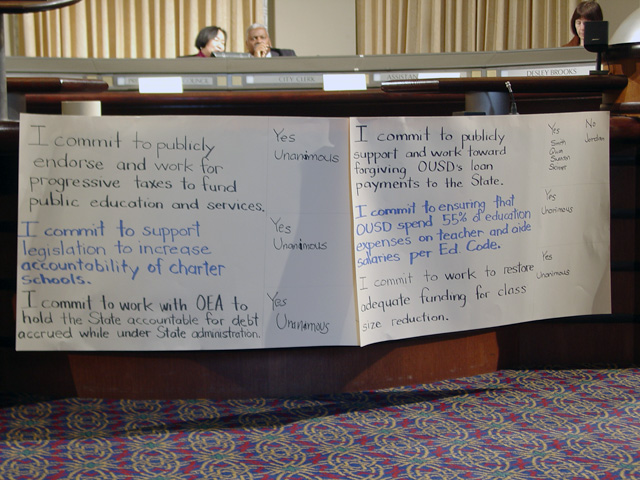 CITY CLERK
ASSISTAN
DESLEY BROOKS
I commit to publicly
endorse and work for
progressive taxes to fund
public education and services.
Yes
Unanimous
I commit to support
legislation to increase
accountability of charter
schools.
Yes
Unanimous
I commit to work with OEA to
hold the State accountable for debt
accrued while under State administration.
Yes
Unanimous
I commit to publicly
support and work toward
forgiving OUSD's loan
payments to the State.
Yes
No
I commit to ensuring that
OUSD spend 55% of education
expenses on teacher and aide
salaries per Ed. Code.
Yes
Unanimous
I commit to work to restore
adequate funding for class
size reduction.
Yes
Unanimous